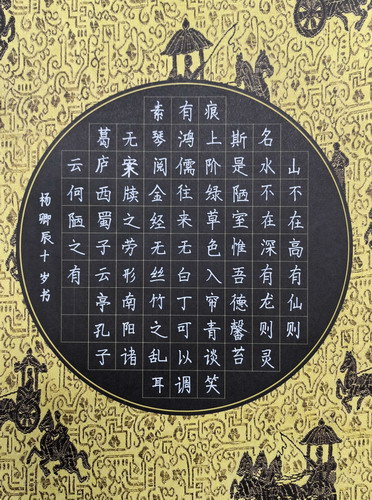 山不在高有仙则
名水不在深有龙则灵
斯是陋室惟吾德馨苔
痕上阶绿草色入帘青谈笑
有鸿儒往来无白丁可以调
素琴阅金经无丝竹之乱耳
无案牍之劳形南阳诸
葛庐西蜀子云亭孔子
云何陋之有
杨卿辰十岁书